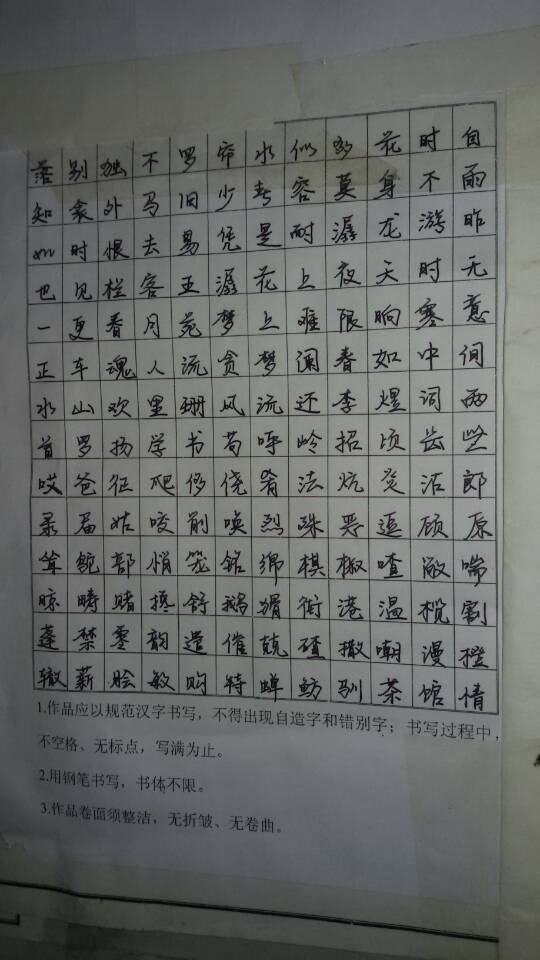 落别独不罗帘水似多花时自
知衾外马旧少春容莫身不雨
如时恨去易凭是耐潺龙游昨
也见栏客五潺花上夜天时无
一更春月苑梦上难限晌寒意
正车魂人流贪梦阑春如中间
水山欢里珊风流还李煜词两
首罗扬学书苟呼岭招顷齿些
哎爸征爬侈侥肴法炕炎沽郎
录眉姑咬削唤烈殊恶逗顾原
耸部悄笼铭绵棋椒喳敞喘
晾畴赌舒鹅猾街港温揽割
蓬禁零韵遣催兢碴撒嘲漫橙
辙薪脍敏购特蝉鲂驯茶馆情
1.作品应以规范汉字书写，不得出现自造字和错别字；书写过程中，
不空格、无标点，写满为止。
2.用钢笔书写，书体不限。
3.作品卷面须整洁，无折皱、无卷曲。